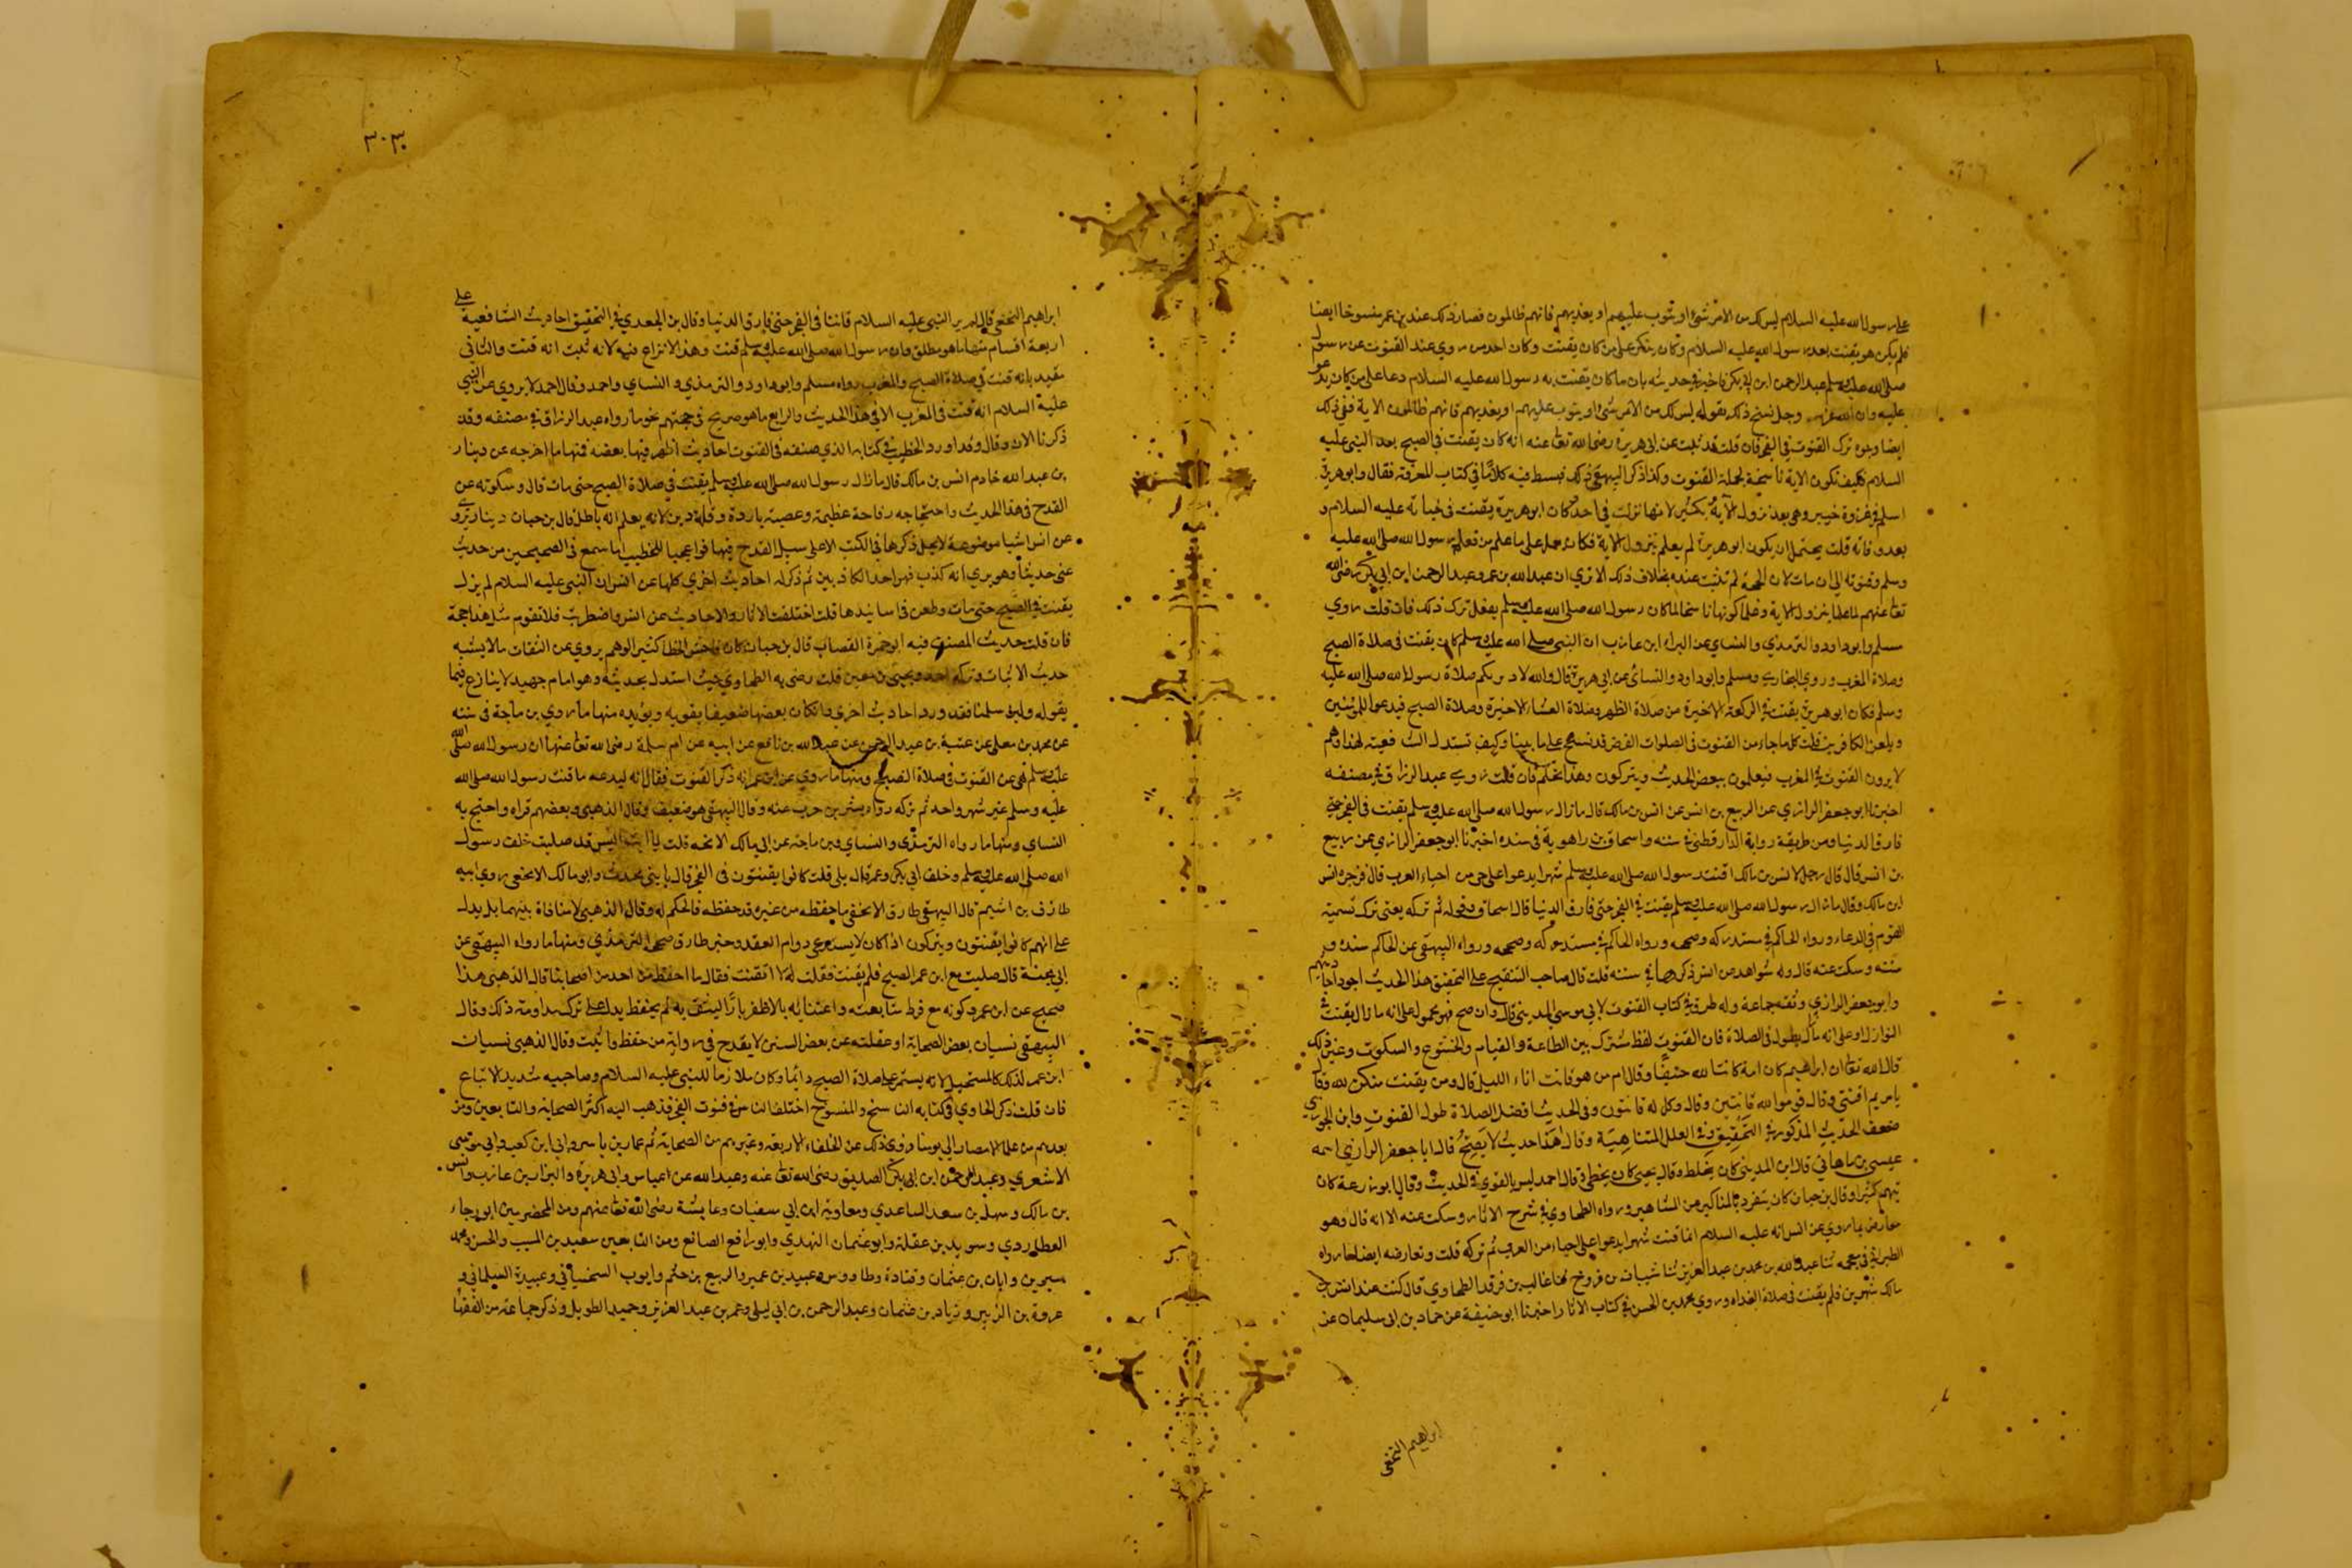 على رسول الله عليه السلام ليس لك من الامر شئ او يتوب عليهم او يعذبهم فانهم ظالمون فصار ذلك عند بن عمر منسوخا ايضا
فلم يكن هو يقنت بعد رسول الله عليه السلام وكان ينكر على من كان يقنت وكان احد من روي عنه القنوت عن رسول
صلى الله عليه وسلم عبد الرحمن ابن ابي بكر فاخبر في حديثه بان ما كان يقنت به رسول الله عليه السلام دعا على من كان يدعو
عليه وان الله عز وجل نسخ ذلك بقوله ليس لك من الامر شئ او يتوب عليهم او يعذبهم فانهم ظالمون الاية ففي ذلك
ايضا وجوب ترك القنوت في الفجر فان قلت قد ثبت عن ابي هريرة رضى الله تعا عنه انه كان يقنت في الصبح بعد النبي عليه
السلام فكيف تكون الاية ناسخة لجملة القنوت وكذا ذكر البيهقي ذلك فبسط فيه كلاما في كتاب المعرفة فقال وابو هريرة
اسلم في غزوة خيبر وهي بعد نزول الآية بكثير لانها نزلت في احد وكان ابو هريرة يقنت في حياته عليه السلام و
بعد وفاته قلت يحتمل ان يكون ابو هريرة لم يعلم بنزول الاية فكان يعمل على ما علم من فعل رسول الله صلى الله عليه
وسلم وقنوته الى ان مات لان الحجة لم تثبت عنده بخلاف ذلك الا ترى ان عبد الله بن عمر وعبد الرحمن ابن ابي بكر رضى الله
تعا عنهم لما علما بنزول الاية وعلما كونها ناسخا لما كان رسول الله صلى الله عليه وسلم يفعل ترك ذلك فان قلت روي
مسلم وابو داود والترمذي والنساي عن البراء ابن عازب ان النبي صلى الله عليه وسلم كان يقنت في صلاة الصبح
وصلاة المغرب وروي البخاري ومسلم وابو داود والنسائ عن ابي هريرة قال والله لاقربكم صلاة رسول الله صلى الله عليه
وسلم فكان ابو هريرة يقنت في الركعة الاخيرة من صلاة الظهر وصلاة العشاء الاخيرة وصلاة الصبح فيدعو للمؤمنين
ويلعن الكافرين قلت كل ما جاء من القنوت في الصلوات الفرض قد نسخ على ما بينا وكيف تستدل الشافعية لهذا وهم
لا يرون القنوت في المغرب فيعملون ببعض الحديث ويتركون وهذا تحكم فان قلت روي عبد الرزاق في مصنفه
اخبرنا ابو جعفر الرازي عن الربيع بن انس عن انس بن مالك قال ما زال رسول الله صلى الله عليه وسلم يقنت في الفجر حتى
فارق الدنيا ومن طريقه رواية الدارقطني في سننه واسحاق بن راهوية في مسنده اخبرنا ابو جعفر الرازي عن ربيع
بن انس قال قال رجل لانس بن مالك اقنت رسول الله صلى الله عليه وسلم شهرا يدعوا على حي من احياء العرب قال فزجره انس
ابن مالك وقال ما زال رسول الله صلى الله عليه وسلم يقنت في الفجر حتى فارق الدنيا قال اسحاق وقوله ثم تركه يعنى ترك تسمية
القوم في الدعاء ورواه الحاكم في مستدركه وصححه ورواه البيهقي عن الحاكم سنده و
سننه وسكت عنه قال وله شواهد عن انس ذكرها في سننه قلت قال صاحب التنقيح على التحقيق هذا الحديث اجود احاديثهم
وابو جعفر الرازي وثقه جماعة وله طرق في كتاب القنوت لابي موسي المديني قال وان صح فهو محمول على انه ما زال يقنت في
النوازل او على انه ما زال يطول في الصلاة فان القنوت لفظ مشترك بين الطاعة والقيام والخشوع والسكوت وغير ذلك
قال الله تعا ان ابراهيم كان امة قانتا لله حنيفا وقال ام من هو قانت اناء الليل قال ومن يقنت منكن لله وقال
يا مريم اقنتي وقال قوموا لله قانتين وقال وكل له قانتون وفي الحديث افضل الصلاة طول القنوت وابن الجوزي
ضعف الحديث المذكور في التحقيق وفي العلل المتناهية وقال هذا حديث لا يصح قال ابا جعفر الرازي اسمه
عيسى بن ماهاني قال ابن المديني كان يخلط وقال يحيى كان يخطي وقال احمد ليس بالقوي في الحديث وقال ابو زرعة كان
يهم كثيرا وقال بن حبان كان ينفرد بالمناكير من المشاهير ورواه الطحاوي في شرح الاثار وسكت عنه الا انه قال وهو
معارض بما روي عن انس انه عليه السلام انما قنت شهرا يدعوا على احياء من العرب ثم تركه قلت وتعارضه ايضا ما رواه
الطبراني في معجمه ثنا عبد الله بن محمد بن عبد العزيز ثنا شيبان بن فروخ ثنا غالب بن فرقد الطحاوي قال كنت عند انس بن
مالك شهرين فلم يقنت في صلاة الغداه وروي محمد بن الحسن في كتاب الاثار اخبرنا ابو حنيفة عن حماد بن ابي سليمان عن
ابراهيم النخعي
٣٠٣
ابراهيم النخعي قال لم ير النبي عليه السلام قانتا في الفجر حتى فارق الدنيا وقال بن الجوزي في التحقيق احاديث الشافعية على
اربعة اقسام منها ما هو مطلق وان رسول الله صلى الله عليه وسلم قنت وهذا لا نزاع فيه لانه ثبت انه قنت والثاني
مقيد بانه قنت في صلاة الصبح والمغرب رواه مسلم وابو داود والترمذي والنساي واحمد وقال احمد لا يروي عن النبي
عليه السلام انه قنت في المغرب الا في هذا الحديث والرابع ما هو صريح في حجتهم نحو ما رواه عبد الرزاق في مصنفه وقد
ذكرنا الان وقال وقد اورد الخطيب في كتابه الذي صنفه في القنوت احاديث اظهر فيها بعضه فمنها ما اخرجه عن دينار
بن عبد الله خادم انس بن مالك قال ما زال رسول الله صلى الله عليه وسلم يقنت في صلاة الصبح حتى مات قال وسكوته عن
القدح في هذا الحديث واحتجاجه به وقاحة عظيمة وعصبية باردة وقلة دين لانه يعلم انه باطل قال بن حبان دينار يروي
عن انس اشيا موضوعة لا يحل ذكرها في الكتب الا على سبيل القدح فيها فواعجبا للخطيب اما سمع في الصحيحين من حديث
عني حديثا وهو يري انه كذب فهو احد الكاذبين ثم ذكر له احاديث اخرى كلها عن انس ان النبي عليه السلام لم يزل
يقنت في الصبح حتى مات وطعن في اسانيدها قلت اختلفت الاثار والاحاديث عن انس واضطربت فلا تقوم بمثل هذا حجة
فان قلت حديث المصنف فيه ابو حمزة القصاب قال بن حبان كان فاحش الخطا كثير الوهم يروي عن الثقات ما لا يشبه
حديث الاثبات وتركه احمد ويحيى بن معين قلت رضى به الطحاوي حيث استدل بحديثه وهو امام جهبيد لا ينازع فيما
يقوله ولئن سلمنا فقد ورد احاديث اخرى وان كان بعضها ضعيفا يقويه ويؤيده منها ما روي بن ماجة في سننه
عن محمد بن معلى عن عنبسة بن عبد الرحمن عن عبد الله بن نافع عن ابيه عن ام سلمة رضى الله تعا عنها ان رسول الله صلى الله
عليه وسلم نهى عن القنوت في صلاة الصبح ومنها ما روي عن ابن عمر انه ذكر القنوت فقال انه لبدعة ما قنت رسول الله صلى الله
عليه وسلم غير شهر واحد ثم تركه رواه بشر بن حرب عنه وقال البيهقي هو ضعيف وقال الذهبي وبعضهم قواه واحتج به
النساي ومنها ما رواه الترمذي والنساي وبن ماجة عن ابي مالك الاشجعي قلت يا ابت اليس قد صليت خلف رسول
الله صلى الله عليه وسلم وخلف ابي بكر وعمر قال بلى قلت كانوا يقنتون في الفجر قال يا بني محدث وابو مالك الاشجعى روي ابيه
طارق بن اشيم قال البيهقي طارق الاشجعي ما حفظه من غيره قد حفظه فالحكم له وقال الذهبي لا منافاة بينهما بل يدل
على انهم كانوا يقنتون ويتركون اذا كان لا يستدعي دوام العقد وخبر طارق صححه الترمذي ومنها ما رواه البيهقي عن
ابي مجلز قال صليت مع ابن عمر الصبح فلم يقنت فقلت له لا تقنت فقال ما احفظه من احد من اصحابنا قال الذهبي هذا
صحيح عن ابن عمر وكونه مع فرط متابعته
البيهقي نسيان بعض الصحابة او غفلته عن بعض السنن لا يقدح في رواية من حفظ واثبت وقال الذهبي نسيان
ابن عمر لذلك كالمستحيل لانه يستمر على صلاة الصبح دائما وكان ملازما للنبي عليه السلام وصاحبيه شديد الاتباع
فان قلت ذكر الحازمي في كتابه الناسخ والمنسوخ اختلف الناس في قنوت الفجر فذهب اليه اكثر الصحابة والتابعين ومن
بعدهم من علماء الامصار الى يومنا وروى ذلك عن الخلفاء الاربعة وغيرهم من الصحابة ثم عمار بن ياسر وابي ابن كعب وابي موسى
الاشعري وعبد الرحمن ابن ابي بكر الصديق رضى الله تعا عنه وعبد الله بن العباس وابي هريرة والبراء بن عازب وانس
بن مالك وسهل بن سعد الساعدي ومعاوية ابن ابي سفيان وعايشة رضى الله تعا عنهم ومن المخضرمين ابو رجاء
العطاردي وسويد بن غفلة وابو عثمان النهدي وابو رافع الصائغ ومن التابعين سعيد بن المسيب والحسن ومحمد
سيرين وابان بن عثمان وقتادة وطاووس وعبيد بن عمير والربيع بن خثم وايوب السختياني وعبيدة السلماني و
عروة بن الزبير وزياد بن عثمان وعبد الرحمن بن ابي ليلى وعمر بن عبد العزيز وحميد الطويل وذكر جماعة من الفقهاء